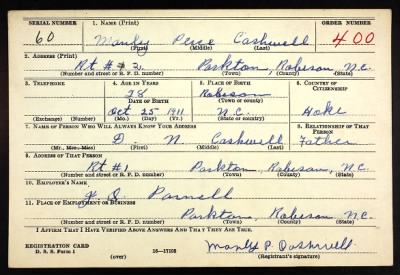 SERIAL NUMBER 1. NAME (Print) ORDER NUMBER
60 Manly Peice Cashwell 400
(First) (Middle) (Last)
2. ADDRESS (Print)
Rt # 2 Parkton, Robeson N.C.
(Number and street or R. F. D. number) (Town) (County) (State)
3. TELEPHONE 4. AGE IN YEARS 5. PLACE OF BIRTH 6. COUNTRY OF CITIZENSHIP
28 Robeson
DATE OF BIRTH (Town or county)
Oct 25 1911 N.C. Hoke
(Exchange) (Number) (Mo.) (Day) (Yr.) (State or country)
7. NAME OF PERSON WHO WILL ALWAYS KNOW YOUR ADDRESS 8. RELATIONSHIP OF THAT PERSON
D. N. Cashwell Father
(Mr., Mrs., Miss) (First) (Middle) (Last)
9. ADDRESS OF THAT PERSON
Rt #1 Parkton, Robeson, N.C.
(Number and street or R. F. D. number) (Town) (County) (State)
10. EMPLOYER'S NAME
Parnell
11. PLACE OF EMPLOYMENT OR BUSINESS
Parkton, Robeson N.C.
(Number and street or R. F. D. number) (Town) (County) (State)
I AFFIRM THAT I HAVE VERIFIED ABOVE ANSWERS AND THAT THEY ARE TRUE.
REGISTRATION CARD
D. S. S. Form 1 16-17105 Manly P. Cashwell
(over) (Registrant's signature)